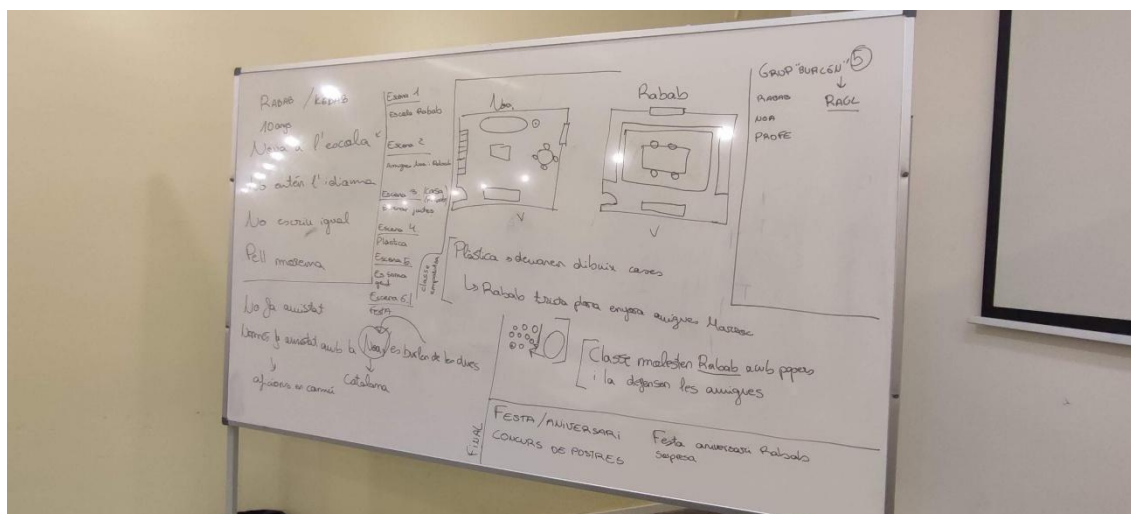 RABAB /
10 anys
Nova a l'escola
No entén l'idioma
No escriu igual
Pell morena
No fa amistat
Només fa amistat amb la Noa, es burlen de les dues
aficions en comú
Catalana
Escena 1
Escola Rabab
Escena 2
Amigues Noa i Rabab
Escena 3
juntes
Escena 4
Plàstica
Escena 5
Es torna
Escena 6
FESTA
classe
Noa
Rabab
V
V
Plàstica demanen dibuix cases
Rabab truca plora enyora amigues Marroc
Classe molesten Rabab amb papers
i la defensen les amigues
FINAL
FESTA/ANIVERSARI
CONCURS DE POSTRES
Festa aniversari Rabab
sorpresa
GRUP 5
RABAB
NOA
PROFE